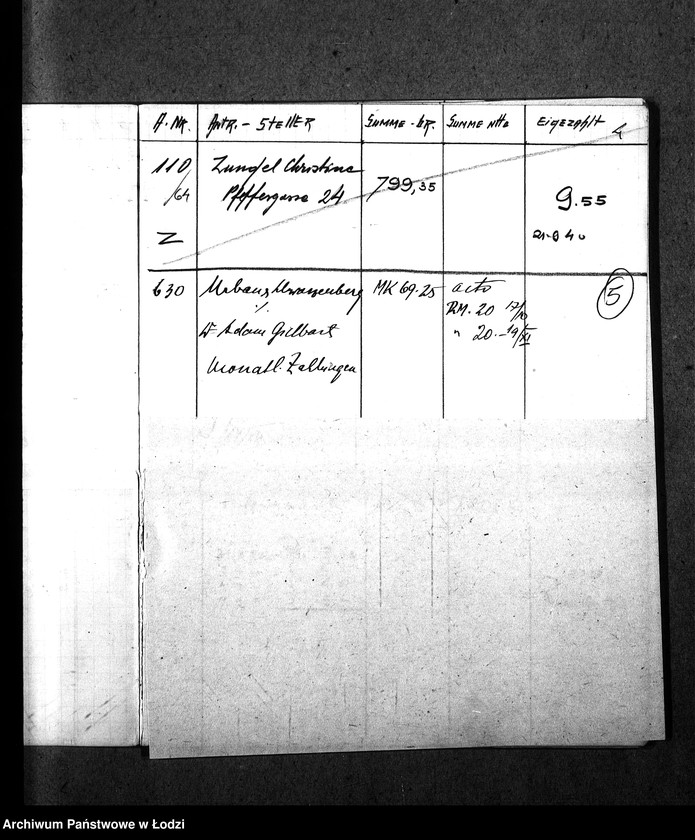 A. NR. ANTR. - STELLER SUMME - BR. SUMME ntto Eigezahlt 4
110/64 Zundel Christine 799,35 9.55
Pfeffergasse 24
Z 21.9 40
630 MK 69.25 acto 5
RM. 20 17/10
" 20.- 19/XI
Adam Gelbart
Monatl. Zahlungen
Archiwum Państwowe w Łodzi